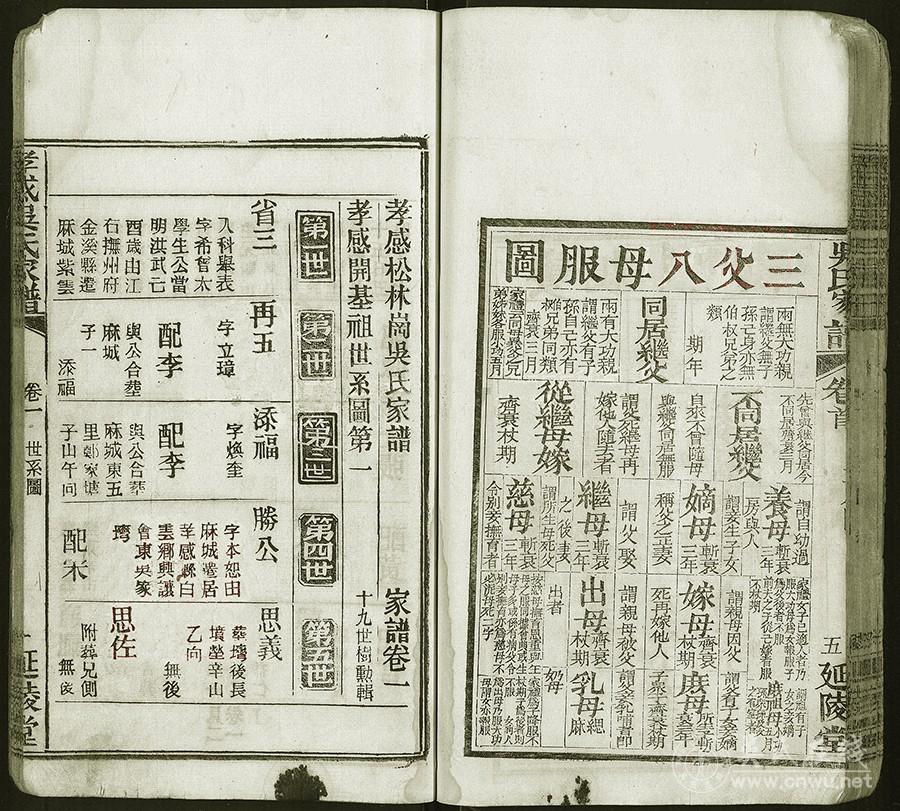 吳氏家譜
卷首
五
延陵堂
三父八母服圖
兩無大功親
謂繼父無子
孫己身亦無
伯叔兄弟之
類
期年
同居繼父
兩有大功親
謂繼父有子
孫自己亦有
伯叔兄弟同類
齊衰三月
先曾與繼父同居今
不同居齊衰三月
不同居繼父
自來不曾隨母
與繼父同居無服
謂父死繼母再
嫁他人隨去者
從繼母嫁
齊衰杖期
謂自幼過
房與人
養母
斬衰三年
謂妾生子女
稱父之正妻
嫡母
斬衰三年
謂父娶
之後妻
繼母
斬衰三年
謂所生母死父
令別妾撫育者
慈母
斬衰三年
謂親母因父
死再嫁他人
嫁母
齊衰杖期
謂親母被父
出者
出母
齊衰杖期
庶母
謂父妾乳哺者即
奶母
乳母
緦麻
孝感松林崗吳氏家譜
家譜卷一
孝感開基祖世系圖第一
十九世樹勳輯
第一世
第二世
第三世
第四世
第五世
省三
入科舉表
字希曾太
學生公當
明洪武己
酉歲由江
右撫州府
金溪縣遷
麻城紫雲
再五
字立璋
配李
與公合塟
麻城
子一
添福
添福
字煥奎
配李
與公合塟
麻城東五
里鄭家塘
子山午向
勝公
字本恕由
麻城遷居
孝感縣白
雲鄉興讓
會東吳家
塆
配宋
思義
塟塆後長
墳塋辛山
乙向
無後
思佐
附葬兄側
無後
孝感吳氏家譜
卷一
世系圖
一
延陵堂
www.cnwu.net